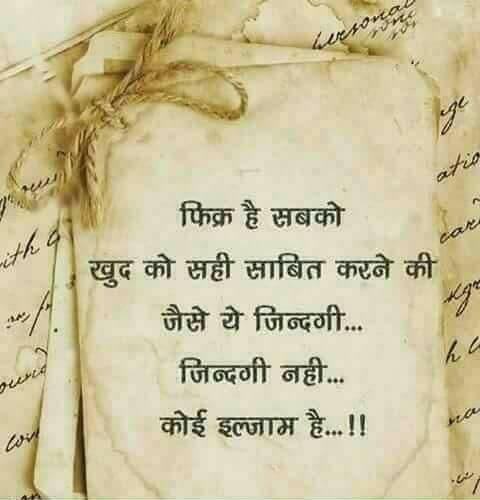 फिक्र है सबको
खुद को सही साबित करने की
जैसे ये जिन्दगी...
जिन्दगी नही...
कोई इल्जाम है...!!